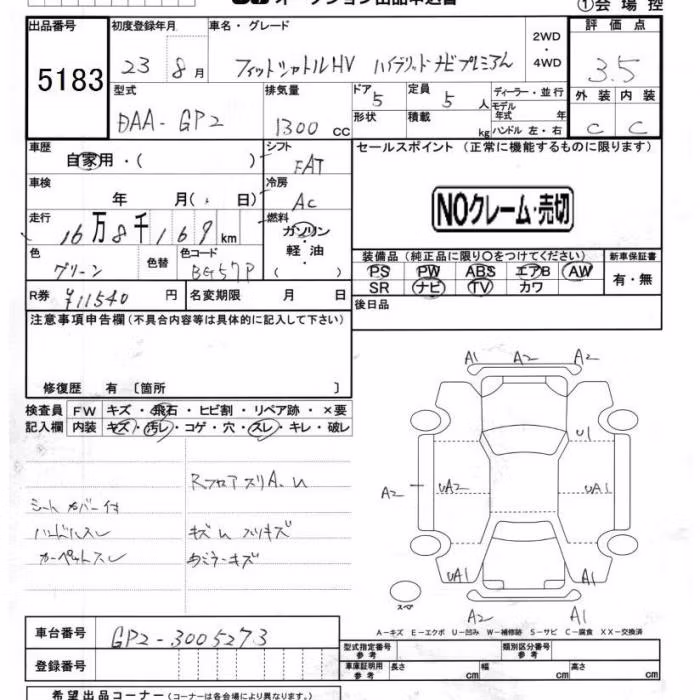 オークション出品申込書
①会場控
出品番号 5183
初度登録年月 23 8月
車名・グレード フィットシャトルHV ハイブリッドナビプレミアム
2WD・4WD
評価点 3.5
外装 内装
C C
型式 DAA-GP2
排気量 1300 cc
ドア 5
形状
定員 5 人
積載 kg
ディーラー・並行
モデル年式 年
ハンドル 左・右
車歴 自家用・( )
シフト FAT
セールスポイント (正常に機能するものに限ります)
NOクレーム・売切
車検 年 月( ・ 日)
冷房 AC
走行 16万8千169km
燃料 ガソリン・軽油 ( )
色 グリーン
色替
色コード BG57P
装備品 (純正品に限り○をつけてください)
新車保証書 有・無
PS PW ABS エアB AW
SR ナビ TV カワ
R券 ¥11540 円
名変期限 月 日
後日品
注意事項申告欄 (不具合内容等は具体的に記入して下さい)
修復歴 有 〔箇所 〕
検査員記入欄
FW キズ・飛石・ヒビ割・リペア跡・×要
内装 キズ・汚レ・コゲ・穴・スレ・キレ・破レ
RフロアスリA.U
シートカバー付
ハンドルスレ
キズUスリキズ
カーペットスレ
内ミラーキズ
A1 A2 A2
U1
A2 UA2 UA1
UA1 A1
スペア
A2 A1
A－キズ E－エクボ U－凹み W－補修跡 S－サビ C－腐食 XX－交換済
車台番号 GP2-3005273
登録番号
型式指定番号 参考
類別区分番号 参考
車庫証明用 参考 長さ cm 幅 cm 高さ cm
希望出品コーナー (コーナーは各会場により異なります。)